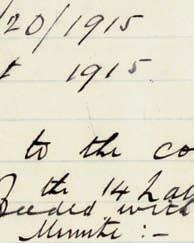 /20/1915
1915.
to the co
the 14
with
Minute :-